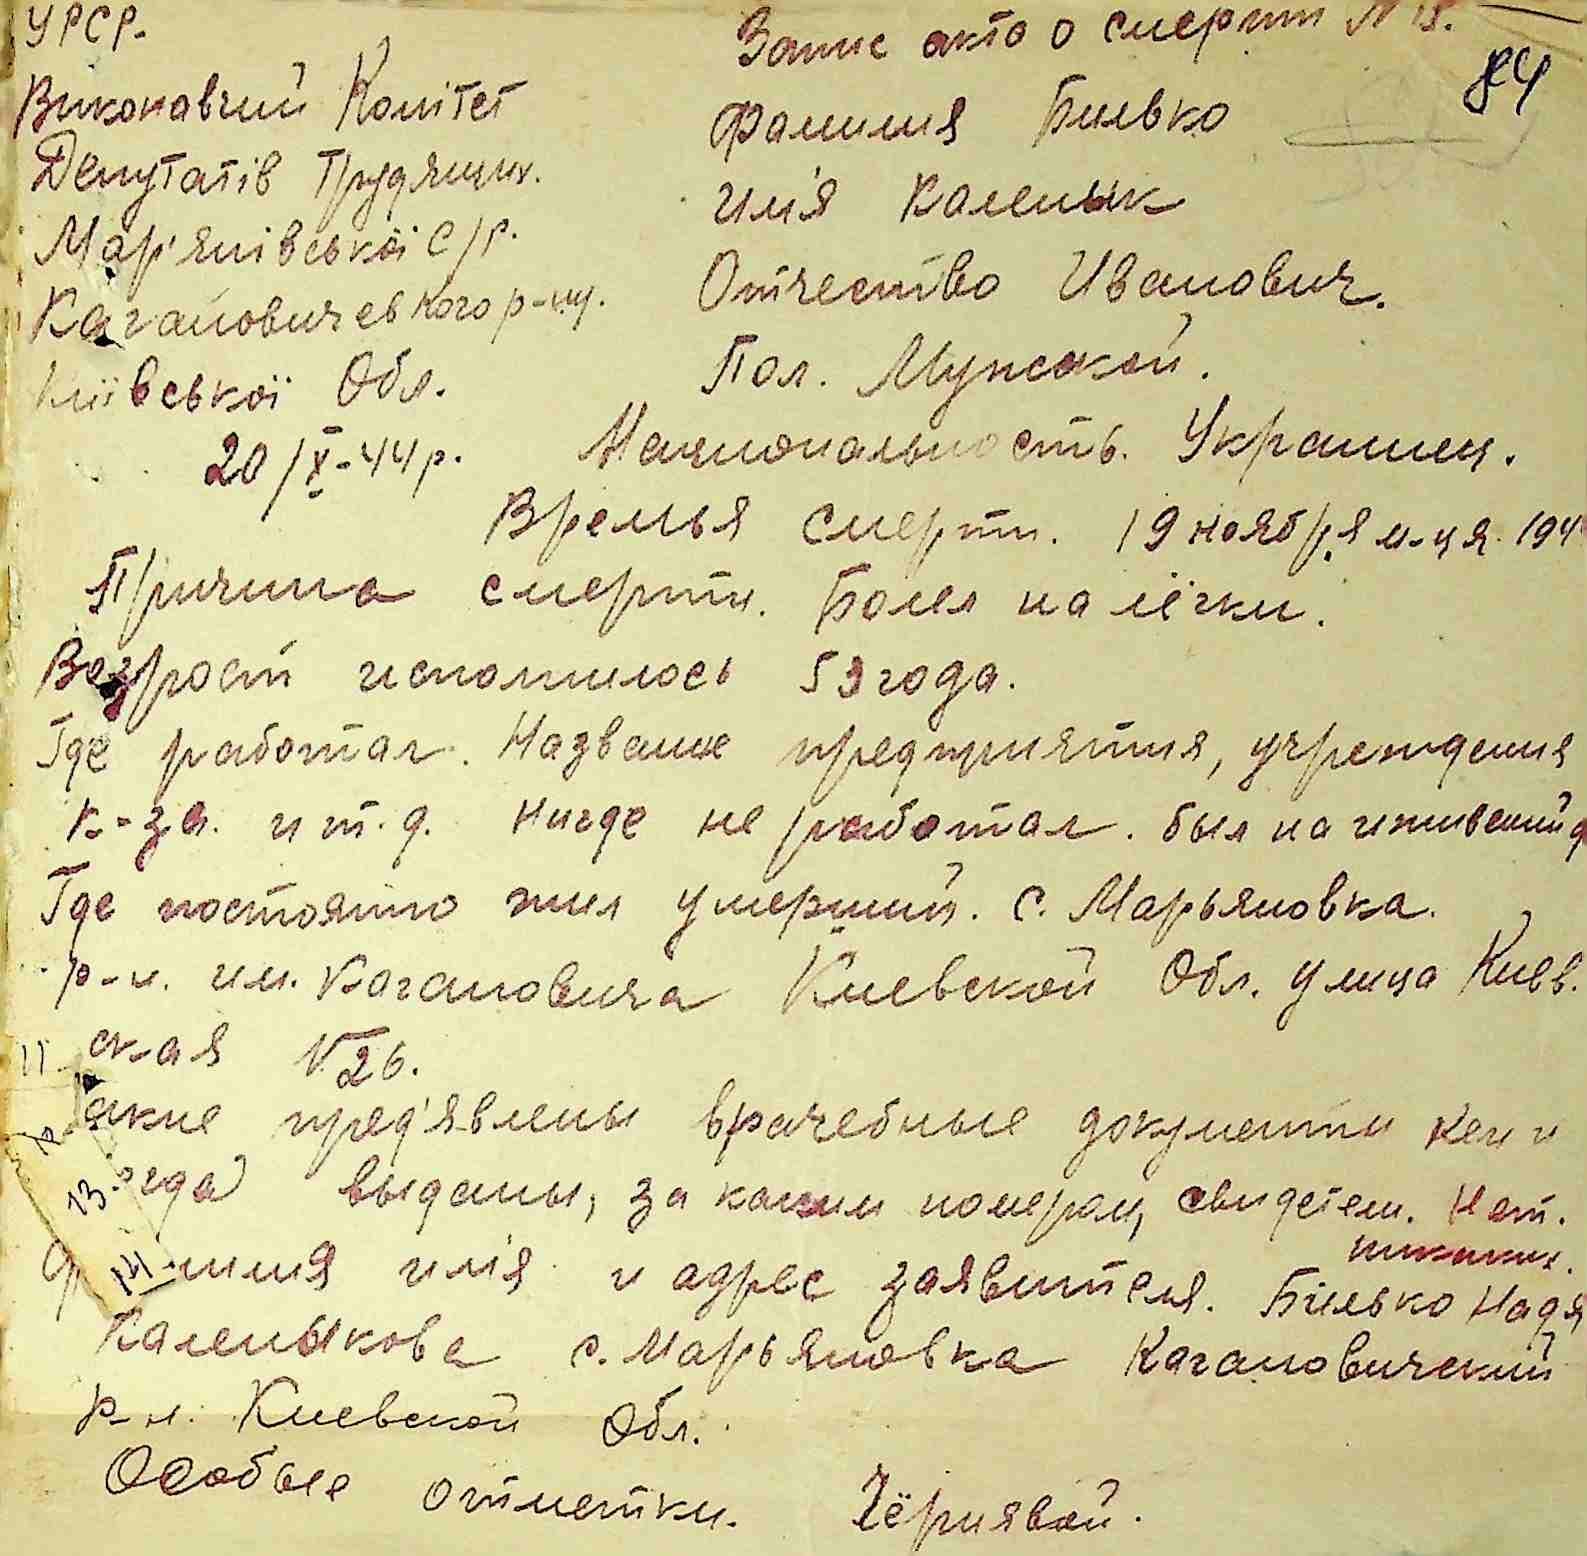 УРСР.
Виконавчий Комітет
Депутатів Трудящих.
Мар'янівської С/Р.
Кагановичевкого р-ну.
Київської Обл.
20/X-44р.
Запис акта о смерти N 18.
84
Фамилия Билько
имя Каленык
Отчество Иванович.
Пол. Мужской.
Национальность. Украинец.
Времья смерти. 19 ноября м-ця. 194
Причина смерти. Болел на лёгки.
Возрост исполнилось 53 года.
Где работал. Название предприятия, учреждения
к-за. и т.д. Нигде не работал. был на иждивений
Где постоянно жил умерший. с. Марьяновка.
р-н. им. Кагановича Киевской Обл. улица Киев.
ская N 26.
акие пред'явлены врачебные документы кем и
огда выданы, за каким номером, свидетел. Нет.
никаких.
Ф милия имя и адрес заявителя. Білько Надя
Каленыкова с. Марьяновка Кагановичский
р-н. Киевской Обл.
Особые отметки. Чёрнявой.
11
12
13
14